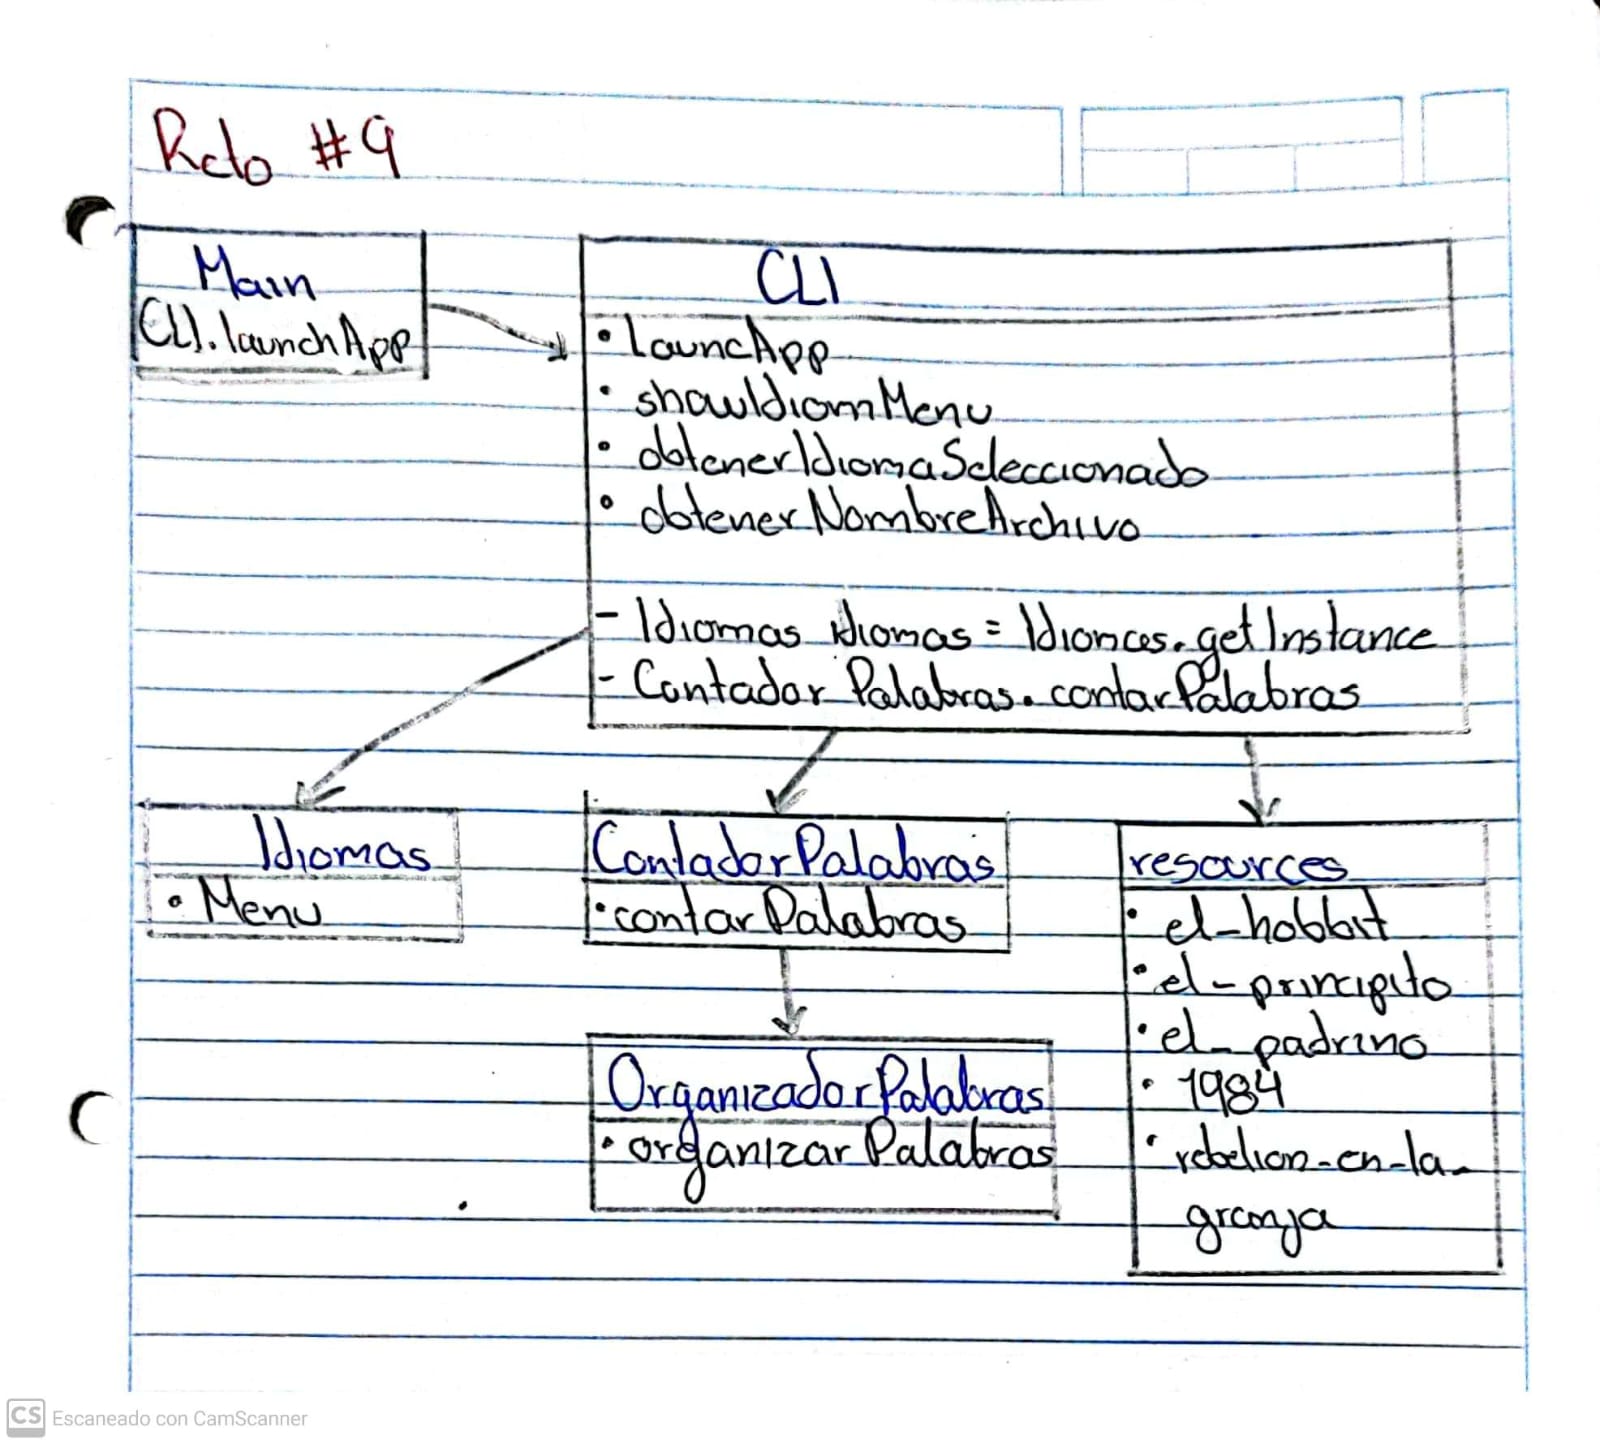 Reto #9
Main
CLI.launchApp
CLI
• LauncApp
• showIdiomMenu
• obtenerIdiomaSeleccionado
• obtenerNombreArchivo
- Idiomas idiomas = Idiomas.getInstance
- Contador Palabras.contarPalabras
Idiomas
• Menu
ContadorPalabras
• contarPalabras
OrganizadorPalabras
• organizarPalabras
resources
• el-hobbit
• el-principito
• el-padrino
• 1984
• rebelion-en-la-
granja
CS Escaneado con CamScanner